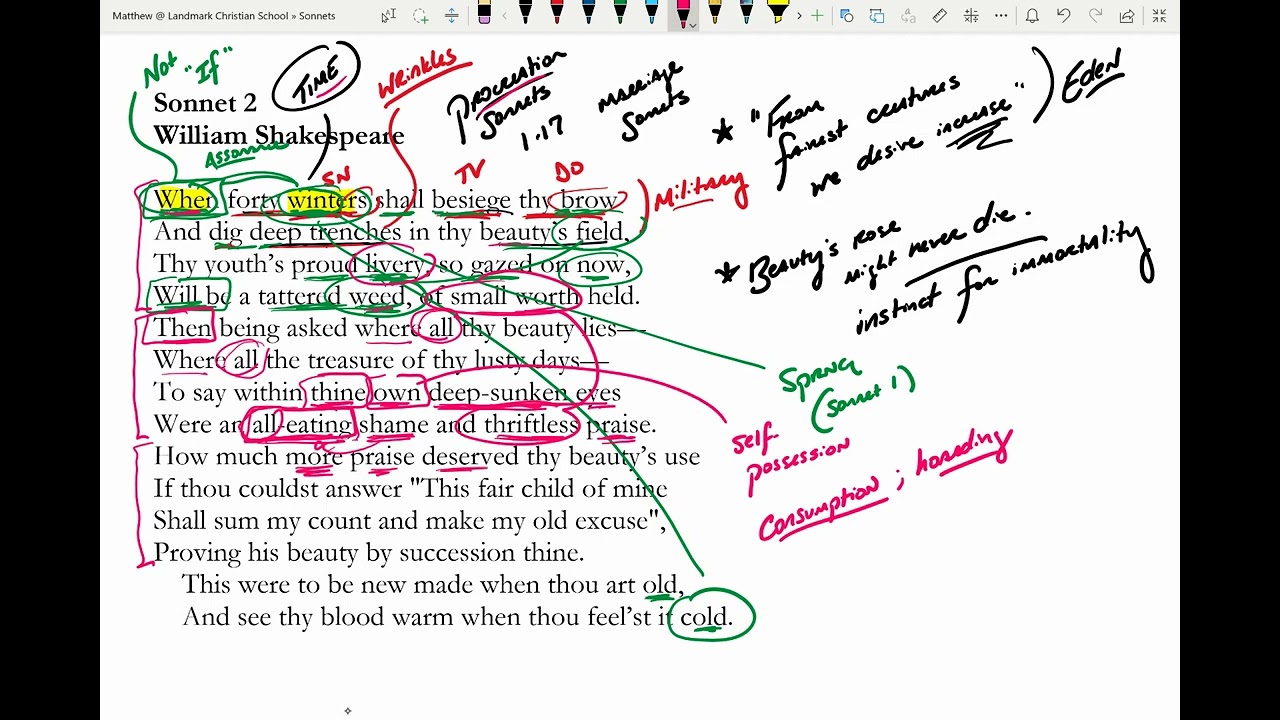 Matthew @ Landmark Christian School » Sonnets
Not "If"
TIME
Wrinkles
Procreation Sonnets 1-17
Marriage Sonnets
* "From fairest creatures we desire increase"
Eden
Sonnet 2
William Shakespeare
Assonance
SN
TV
DO
Military
When forty winters shall besiege thy brow
And dig deep trenches in thy beauty's field,
Thy youth's proud livery, so gazed on now,
Will be a tattered weed, of small worth held.
Then being asked where all thy beauty lies—
Where all the treasure of thy lusty days—
To say within thine own deep-sunken eyes
Were an all-eating shame and thriftless praise.
How much more praise deserved thy beauty's use
If thou couldst answer "This fair child of mine
Shall sum my count and make my old excuse",
Proving his beauty by succession thine.
This were to be new made when thou art old,
And see thy blood warm when thou feel'st it cold.
* Beauty's rose
might never die.
instinct for immortality
Spring
(Sonnet 1)
Self-
possession
Consumption; hoarding